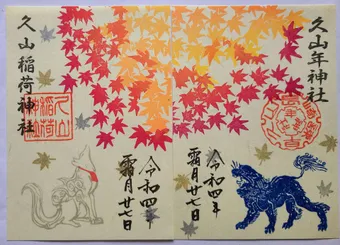 久山年神社
令和四年
霜月廿七日
久山稲荷神社
令和四年
霜月廿七日
久山
稲荷
神社